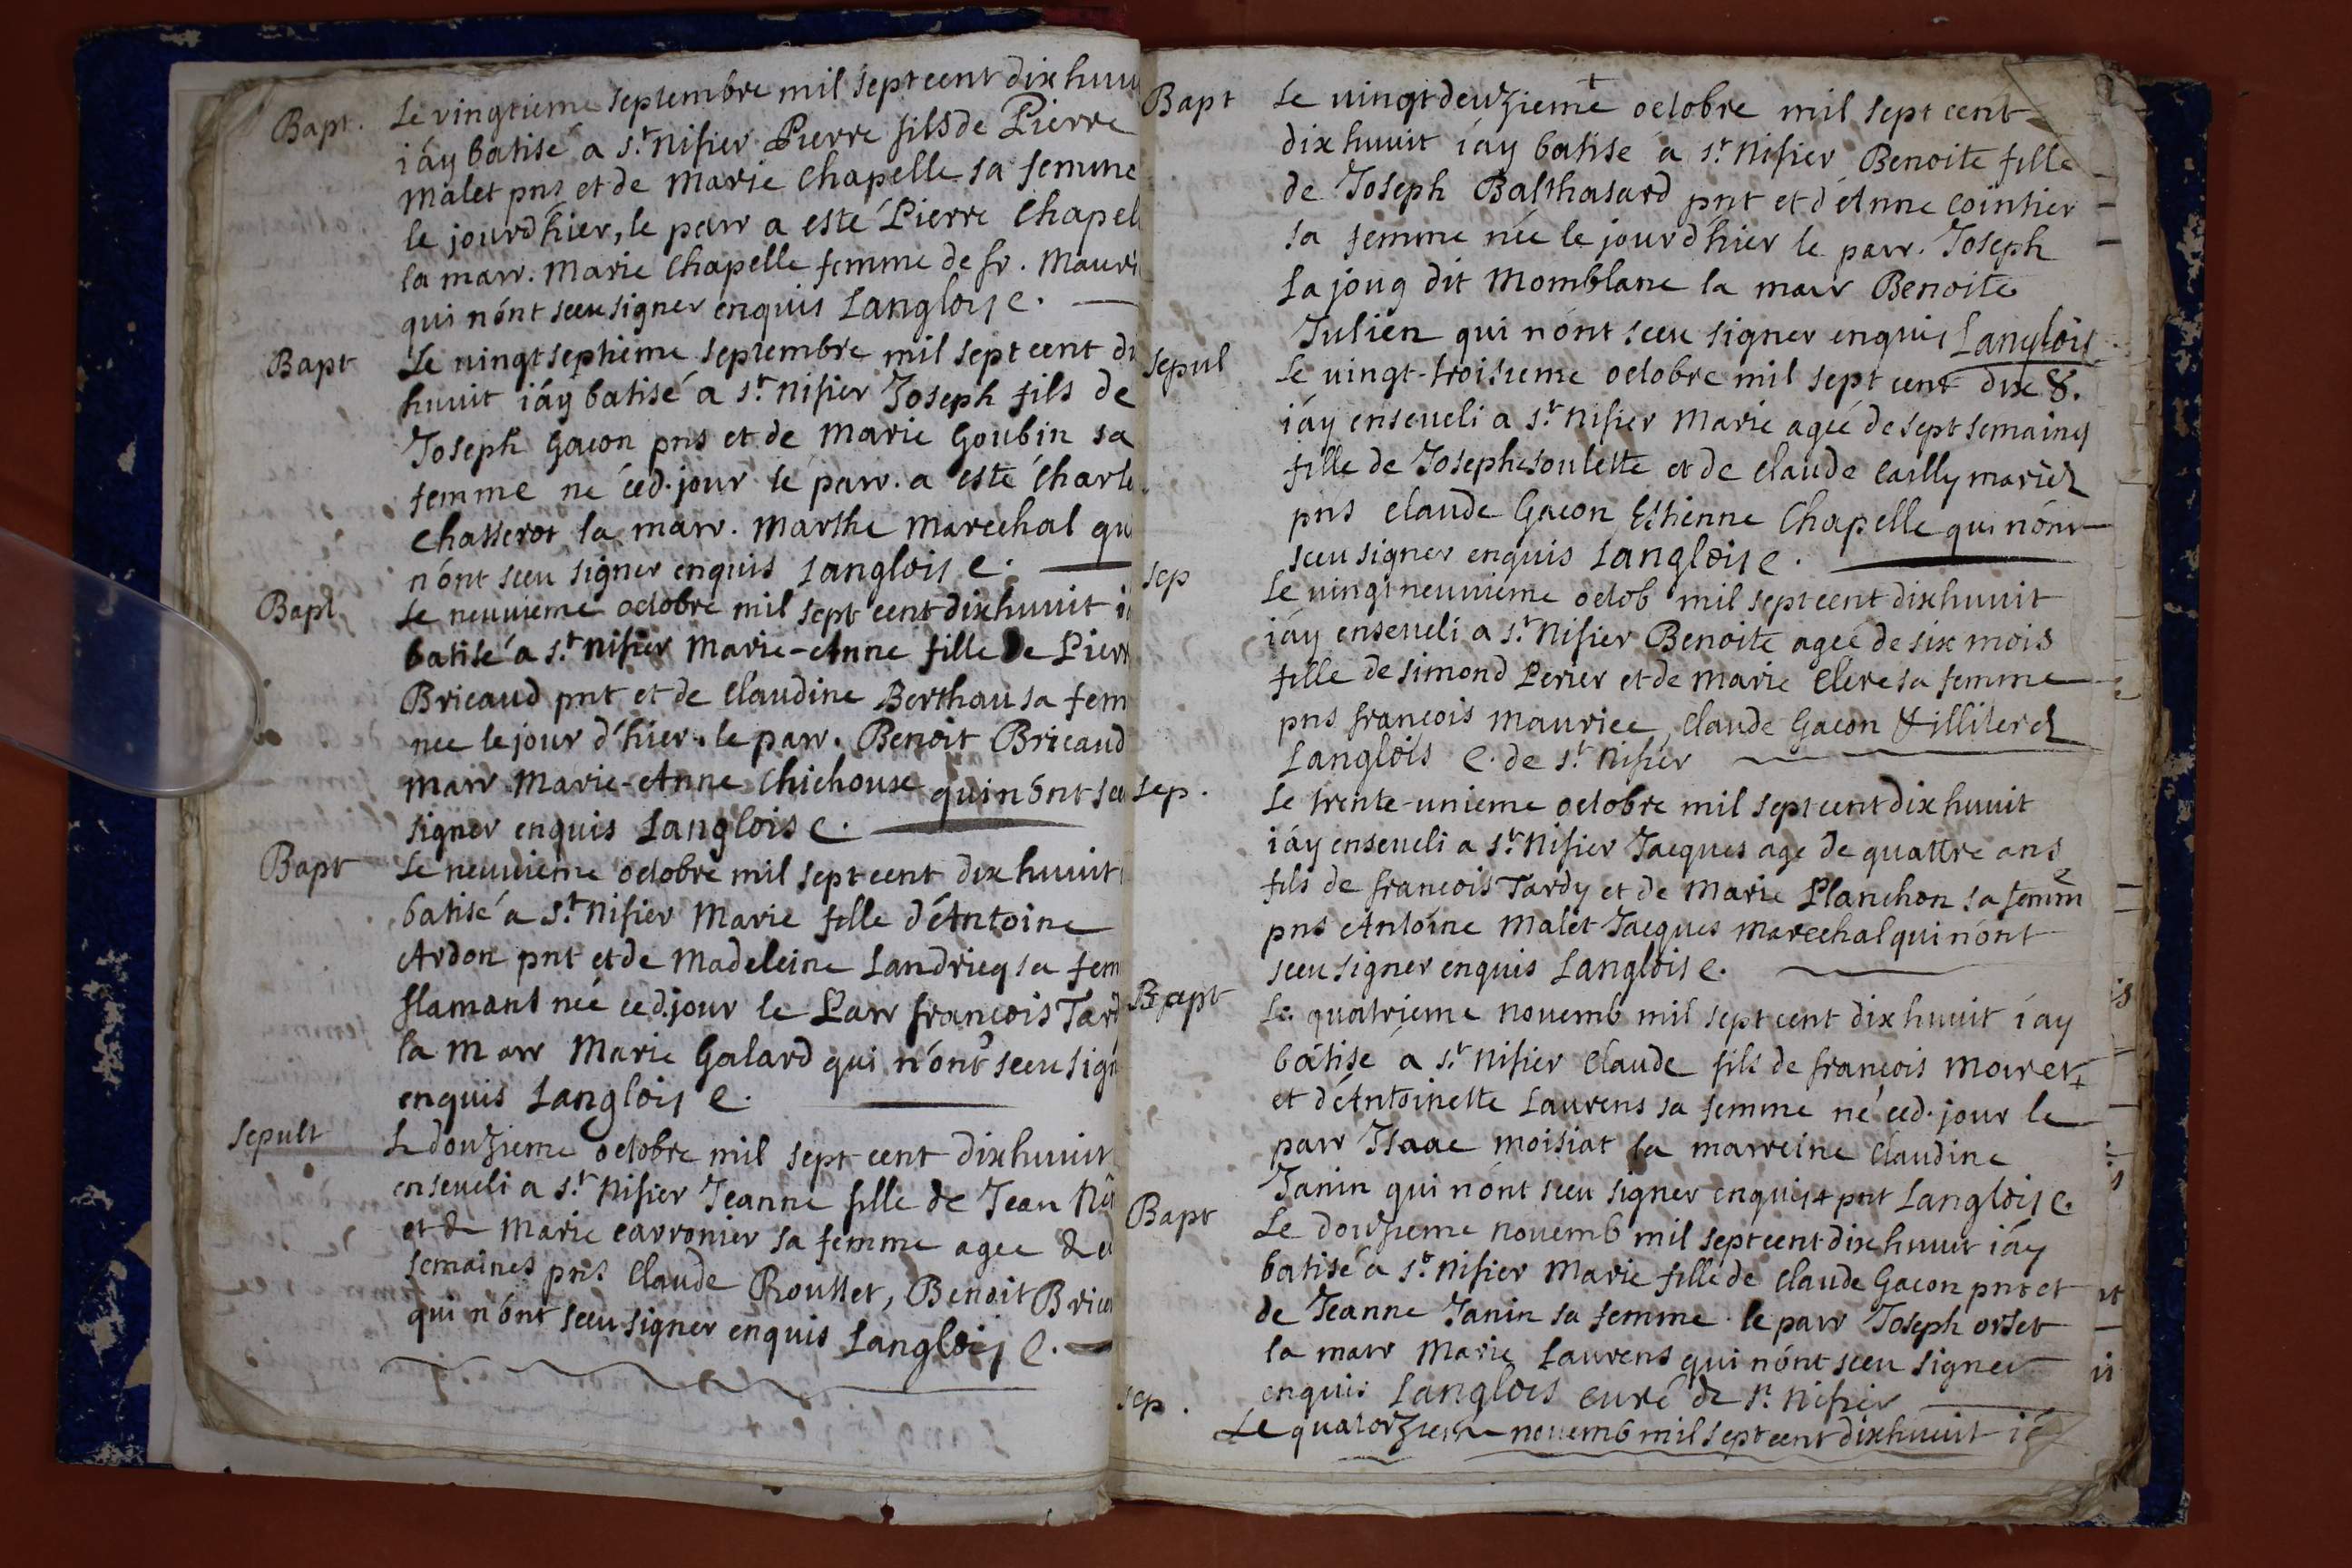 Bapt.
Le vingtieme septembre mil sept cent dix huui
i'ay batisé a st. nisier Pierre fils de Pierre
malet pns et de marie chapelle sa femme
le jourd'hier, le parr a esté Pierre chapel
la marr. marie chapelle femme de fr. mauri
qui n'ont sceu signer enquis Langlois c.
Bapt
Le uingt septieme septembre mil sept cent di
huuit i'ay batisé a st. nisier Joseph fils de
Joseph Gacon pns et de marie Goubin sa
femme né ced. jour le parr. a esté charle
chasserot la marr. marthe marechal qu
n'ont sceu signer enquis Langlois c.
Bapt
Le neuuieme octobre mil sept cent dix huuit i
batisé a st. nisier marie-Anne fille de Pierr
Bricaud pnt et de claudine Berthau sa fem
nee le jour d'hier. le parr. Benoit Bricaud
marr marie-Anne chichoux qui n'ont sce
signer enquis Langlois c.
Bapt
Le neuuieme octobre mil sept cent dix huuit
batisé a st. nisier marie fille d'Antoine
Ardon pnt et de madeleine Landrieq sa fem
flamant née ced. jour le Parr francois Tard
la marr marie Galard qui n'ont sceu sign
enquis Langlois c.
Sepult
Le douzieme octobre mil sept cent dix huuit
enseueli a st. nisier Jeanne fille de Jean
et de marie carronier sa femme agee de
semaines pns claude Rousset, Benoit Brica
qui n'ont sceu signer enquis Langlois c.
Bapt
Le uingt deuzieme octobre mil sept cent
dix huuit i'ay batisé a st. nisier Benoite fille
de Joseph Balthasard pnt et d'Anne cointier
sa femme née le jourd'hier le parr. Joseph
La joug dit momblanc la marr Benoite
Julien qui n'ont sceu signer enquis Langlois
sepul
Le uingt-troisieme octobre mil sept cent dix 8.
i'ay enseueli a st. nisier marie ageé de sept semaines
fille de Joseph soulette et de claude cailly mariez
pns claude Gacon Estienne chapelle qui n'ont
sceu signer enquis Langlois c.
sep
Le uingt neuuieme octob mil sept cent dix huuit
i'ay enseueli a st. nisier Benoite ageé de six mois
fille de simond Perier et de marie clere sa femme
pns francois maurice, claude Gacon & illiterez
Langlois c. de st. nisier
sep.
Le trente-unieme octobre mil sept cent dix huuit
i'ay enseueli a st. nisier Jacques age de quattre ans
fils de francois Tardy et de marie Planchon sa femme
pns Antoine malet Jacques marechal qui n'ont
sceu signer enquis Langlois c.
Bapt
Le quatrieme nouemb mil sept cent dix huuit i'ay
batisé a st. nisier claude fils de francois +
et d'Antoinette Laurens sa femme né ced. jour le
parr Isaac moisiat la marreine claudine
Janin qui n'ont sceu signer enquis + pnt Langlois c.
Bapt
Le douzieme nouemb mil sept cent dix huuit i'ay
batisé a st. nisier marie fille de claude Gacon pnt et
de Jeanne Janin sa femme. le parr Joseph orset
la marr marie Laurens qui n'ont sceu signer
enquis Langlois curé de st. nisier
sep.
Le quatorzieme nouemb mil sept cent dix huuit